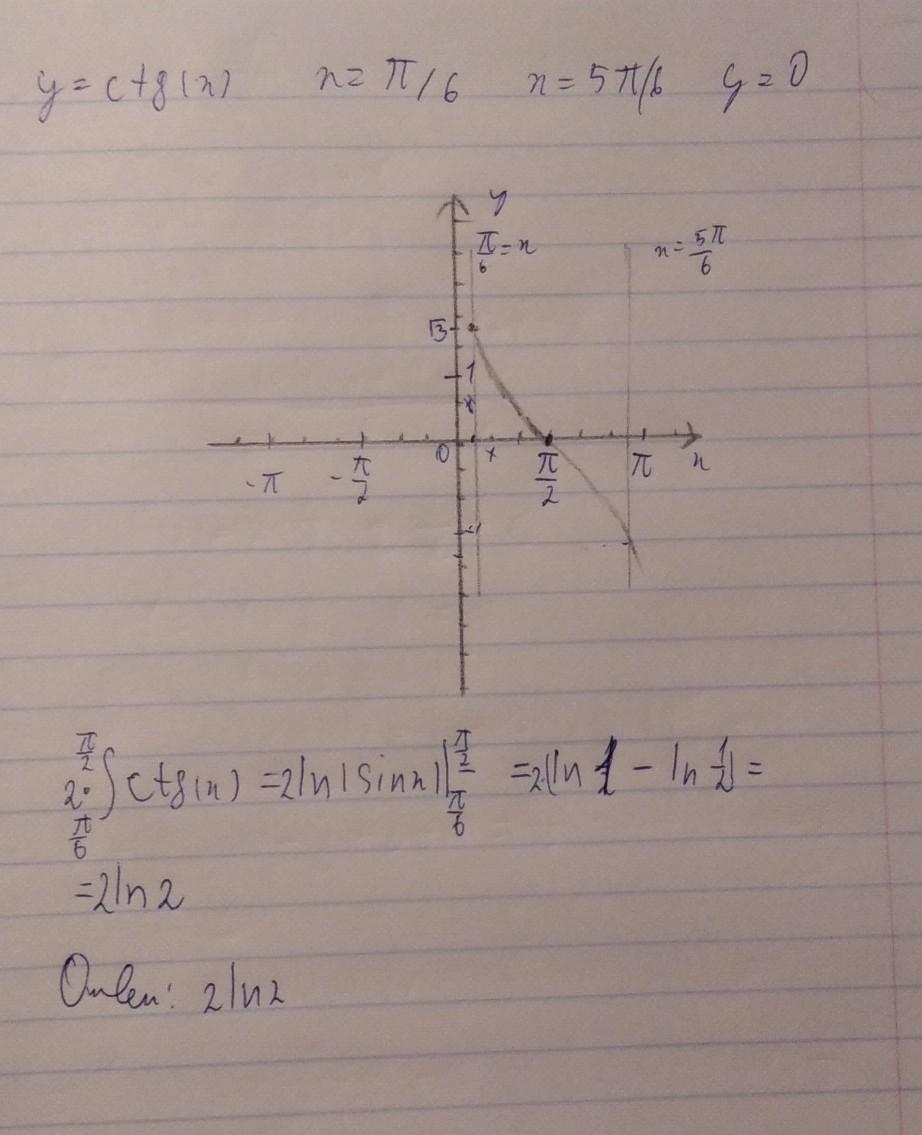 y = ctg(x) x = π/6 x = 5π/6 y = 0
y
π/6 = x x = 5π/6
√3
1
-π -π/2 0 π/2 π x
-1
2·∫_{π/6}^{π/2} ctg(x) = 2ln|sinx| |_{π/6}^{π/2} = 2(ln 1 - ln 1/2) =
= 2ln2
Ответ: 2ln2